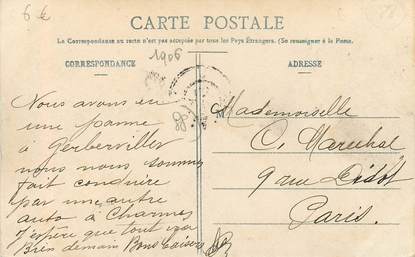 6 €
CARTE POSTALE
La Correspondance au recto n'est pas acceptée par tous les Pays Étrangers. (Se renseigner à la Poste.
1906
CORRESPONDANCE
ADRESSE
Nous avons eu
une panne
à Gerberviller
nous nous sommes
fait conduire
par une autre
auto à Charmes
J'espère que tout ira
Bien demain Bons Baisers
Mademoiselle
C. Marechal
9 rue Didot
Paris.